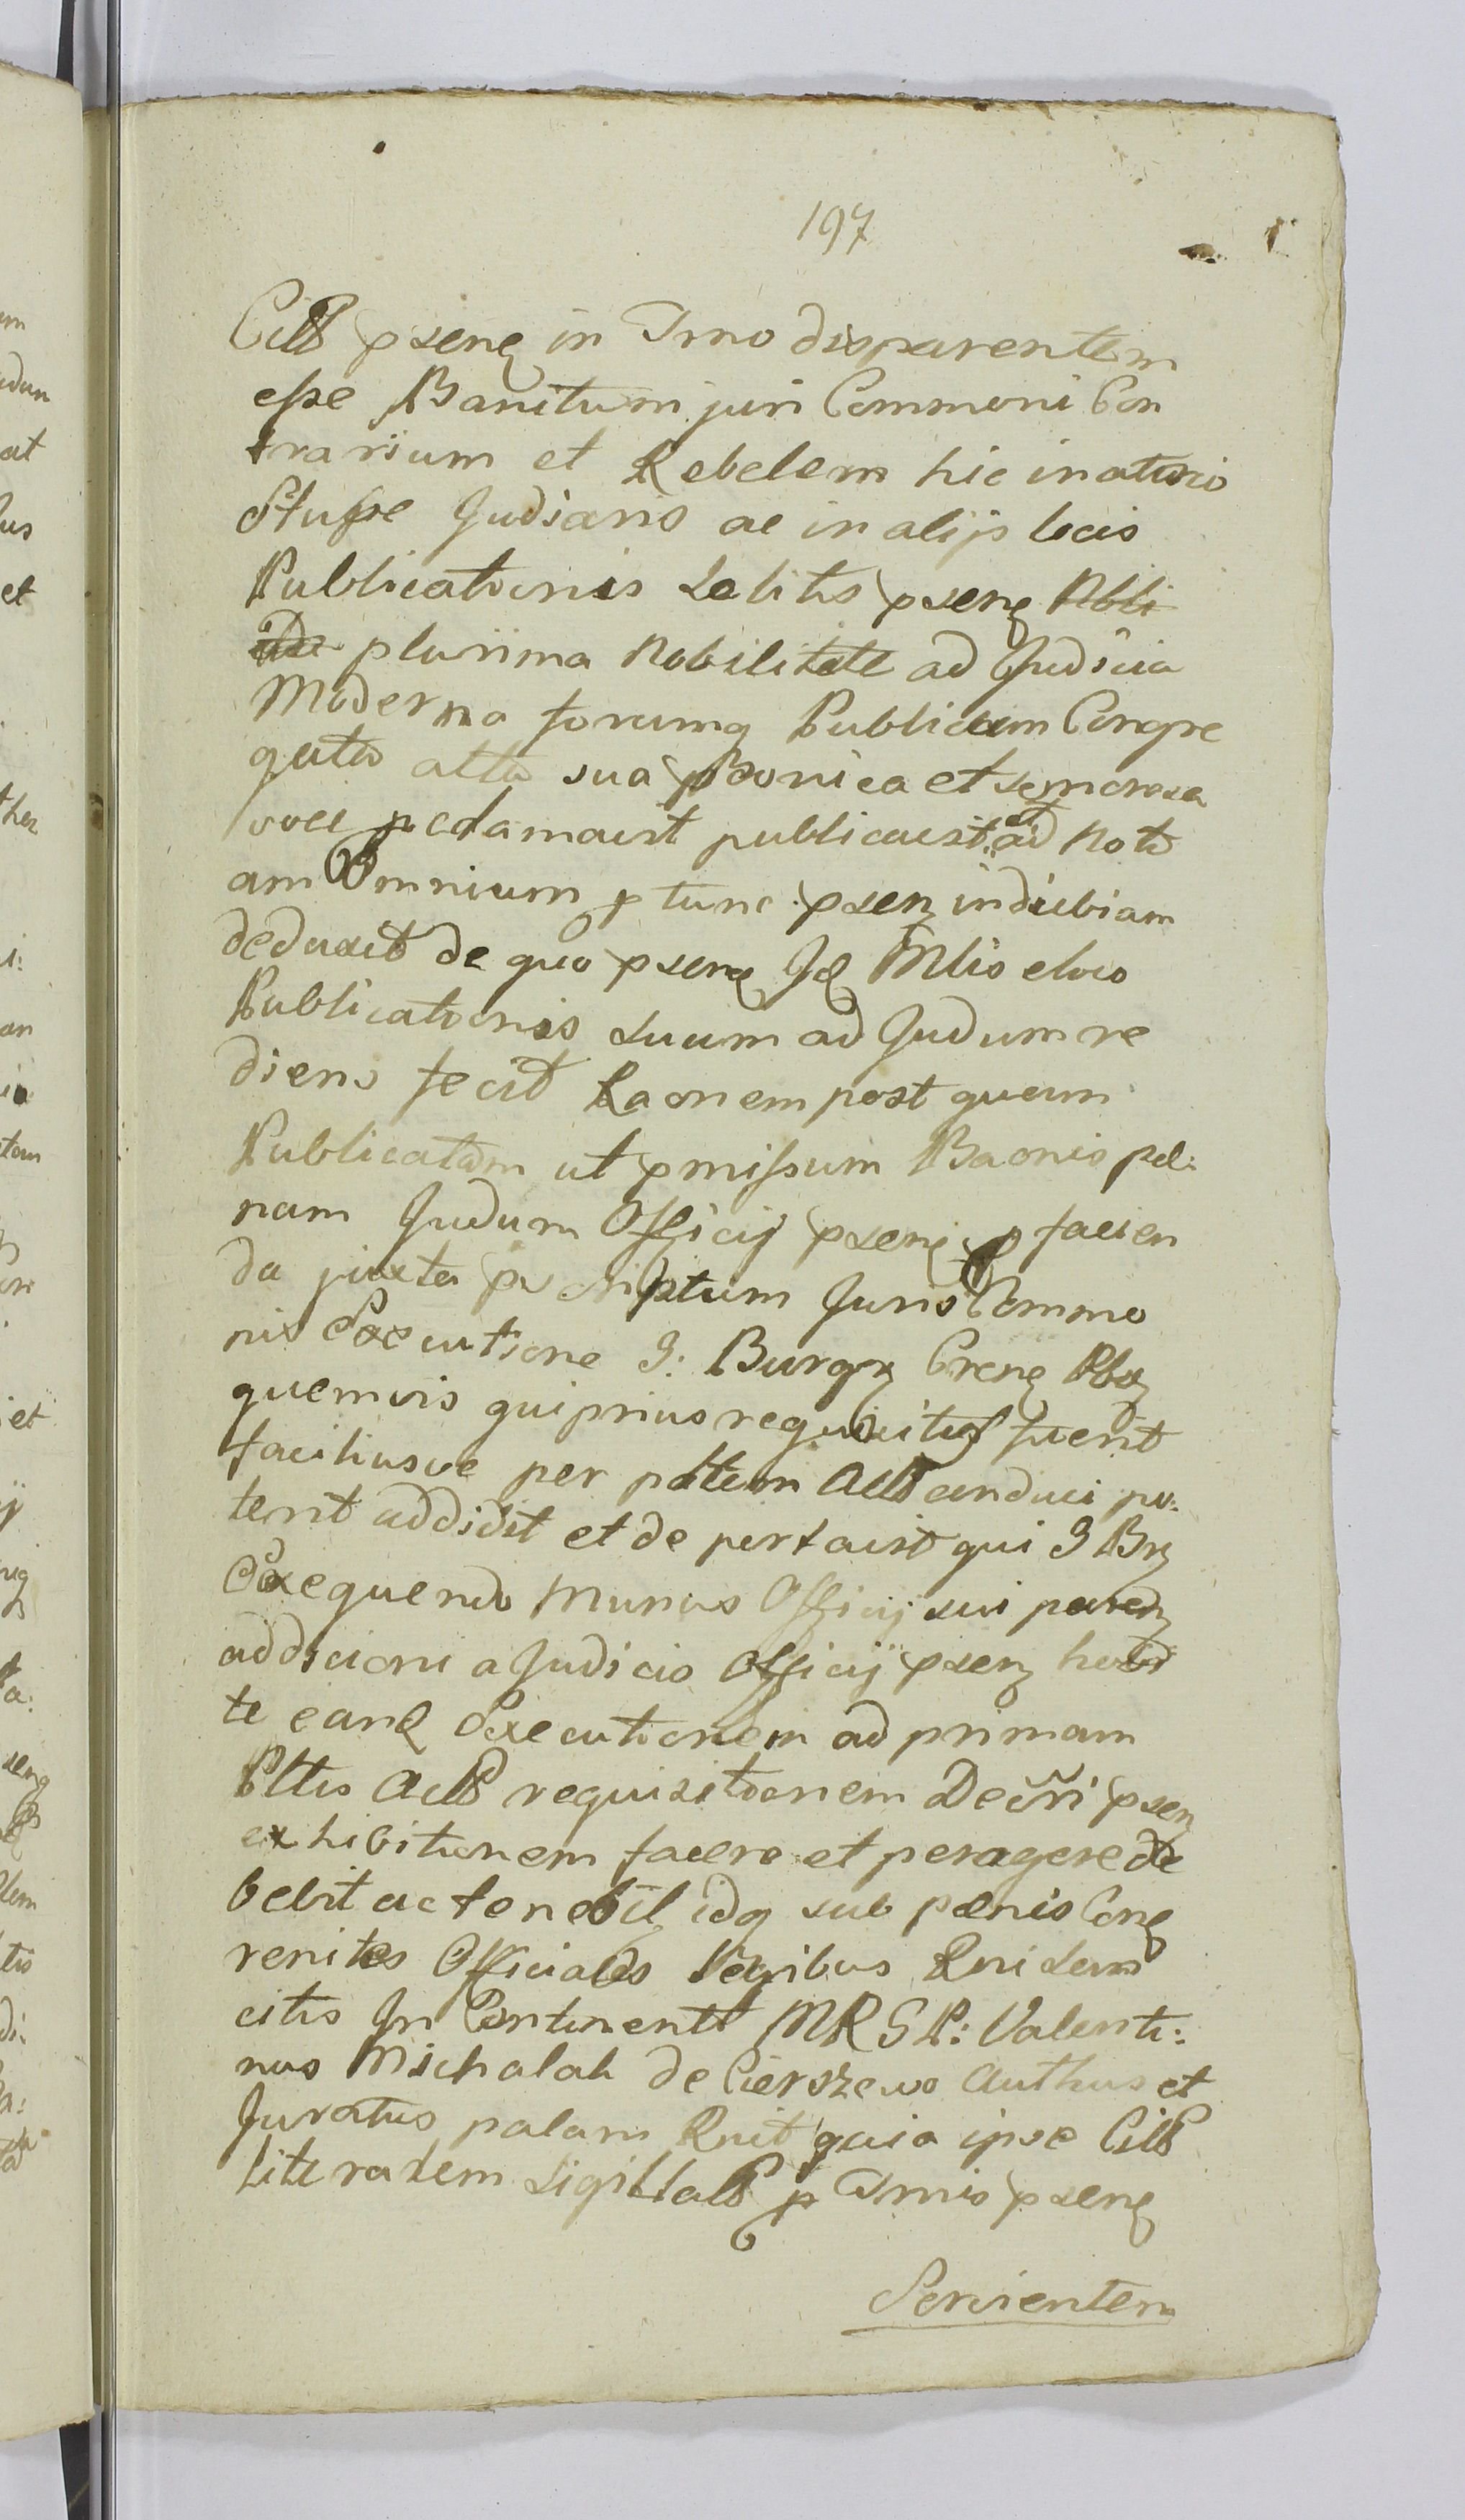 197
Citt psenq in Trno disparentem
esse Banitum juri Communi Con
trarium et Rebelem hic in atrio
Stubae Judians ac in alijs locis
Publicationis solitis psenq Nbli
plurima nobilitate ad Judicia
Moderna forumq Publicum Congre
gata alta sua Bonica et
voce pclamavit publicavit et ad noti
am Omnium p tunc psenz indubiam
deduxit de quo psenq Jq Mtlis eloco
Publicationis suum ad Judum re
diens fecit Raonem post quam
Publicatam ut pmissum Baonis pæ:
nam Judum Officij psenq p facien
da juxta pscriptum Juris Commu
nis Executione G: Burgrz Crenq Nbz
quemvis qui prius requisitus fuerit
faciliusve per pattem Actt conduci po:
terit addidit et de putavit qui G Brz
Exequendo Munus Officij sui
addicioni a Judicio Officij psenz
te eanq Executionem ad primam
Pttis Actt requisitionem Decri psenz
exhibitionem facere et peragere de
bebit ac tenebit, idq sub pænis Conq
renites Officiales legibus Rni sanc
citis In Continenti MRGR: Valenti:
nus Michalak de Cierszewo Authus et
Juratus palam Rnit quia ipse Citt
literatem sigillatt p Trnis psenq
Servientem